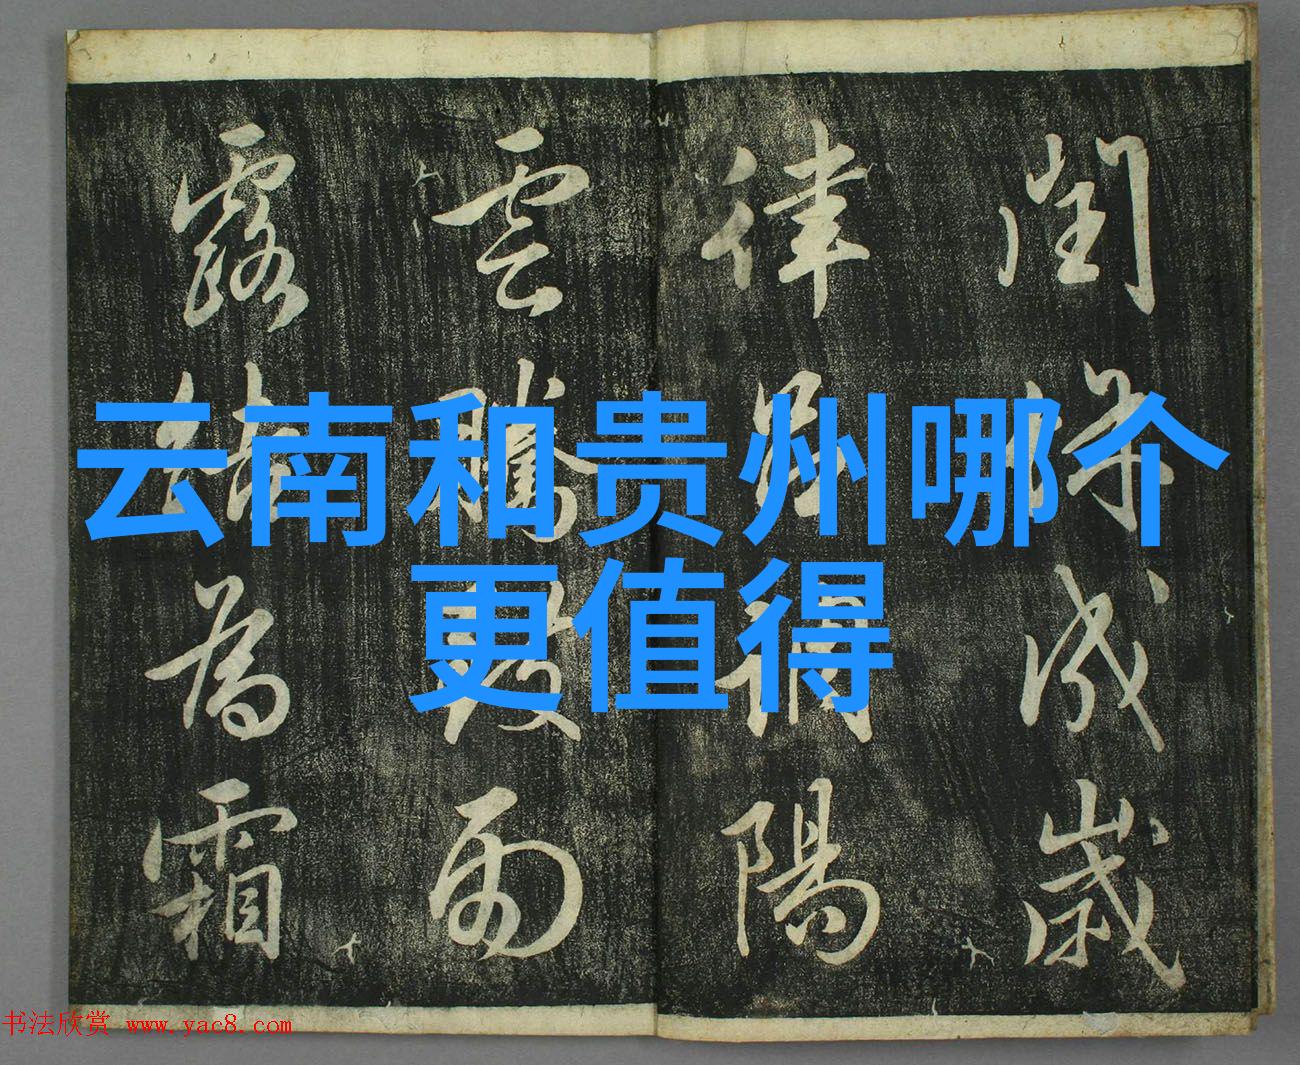 閏餘成歲
律呂調陽
雲騰致雨
露結為霜
云南和贵州哪个
更值得
书法欣赏 www.yac8.com